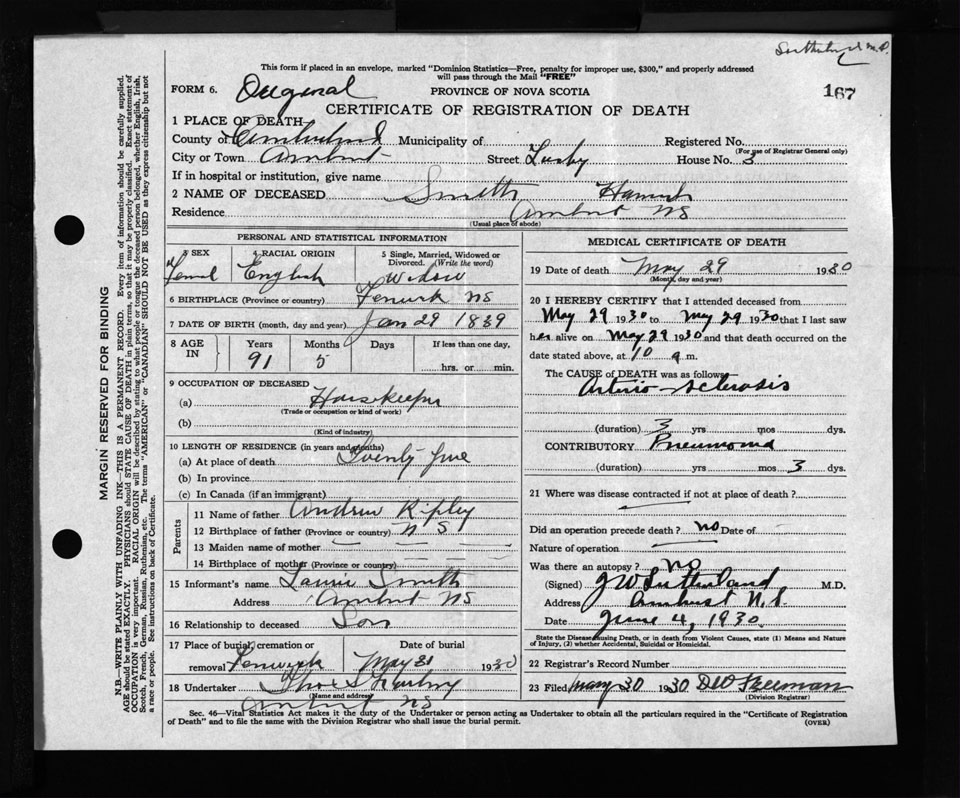 Sutherland M.D.
This form if placed in an envelope, marked "Dominion Statistics—Free, penalty for improper use, $300," and properly addressed
will pass through the Mail "FREE"
FORM 6. Original PROVINCE OF NOVA SCOTIA
167
CERTIFICATE OF REGISTRATION OF DEATH
1 PLACE OF DEATH
County of Cumberland Municipality of Registered No.
(For use of Registrar General only)
City or Town Amherst Street Lusby House No. 3
If in hospital or institution, give name
2 NAME OF DECEASED Smith Hannah
Residence Amherst NS
(Usual place of abode)
PERSONAL AND STATISTICAL INFORMATION
3 SEX 4 RACIAL ORIGIN 5 Single, Married, Widowed or Divorced. (Write the word)
Femal English Widow
6 BIRTHPLACE (Province or country) Fenwick NS
7 DATE OF BIRTH (month, day and year) Jan 29 1839
8 AGE IN Years Months Days If less than one day,
91 5 hrs. or min.
9 OCCUPATION OF DECEASED
(a) Housekeeper
(Trade or occupation or kind of work)
(b)
(Kind of industry)
10 LENGTH OF RESIDENCE (in years and months)
(a) At place of death
(b) In province
(c) In Canada (if an immigrant)
Parents
11 Name of father Andrew Ripley
12 Birthplace of father (Province or country) N S
13 Maiden name of mother
14 Birthplace of mother (Province or country)
15 Informant's name Smith
Address Amherst NS
16 Relationship to deceased Son
17 Place of burial, cremation or removal Fenwick Date of burial May 31 1930
18 Undertaker
(Name and address)
Amherst NS
MEDICAL CERTIFICATE OF DEATH
19 Date of death May 29 1930
(Month, day and year)
20 I HEREBY CERTIFY that I attended deceased from
May 29 1930 to May 29 1930 that I last saw
her alive on May 29 1930 and that death occurred on the
date stated above, at 10 a m.
The CAUSE of DEATH was as follows
Arterio-sclerosis
(duration) 3 yrs mos dys.
CONTRIBUTORY Pneumonia
(duration) yrs mos 3 dys.
21 Where was disease contracted if not at place of death?
Did an operation precede death? no Date of
Nature of operation
Was there an autopsy? no
(Signed) J W Sutherland M.D.
Address Amherst N.S.
Date June 4, 1930
State the Disease causing Death, or in death from Violent Causes, state (1) Means and Nature
of Injury, (2) whether Accidental, Suicidal or Homicidal.
22 Registrar's Record Number
23 Filed May 30 1930 Freeman
(Division Registrar)
Sec. 46—Vital Statistics Act makes it the duty of the Undertaker or person acting as Undertaker to obtain all the particulars required in the "Certificate of Registration
of Death" and to file the same with the Division Registrar who shall issue the burial permit. (OVER)
MARGIN RESERVED FOR BINDING
N.B.—WRITE PLAINLY WITH UNFADING INK—THIS IS A PERMANENT RECORD. Every item of information should be carefully supplied.
AGE should be stated EXACTLY. PHYSICIANS should STATE CAUSE OF DEATH in plain terms, so that it may be properly classified. Exact statement of
OCCUPATION is very important. RACIAL ORIGIN will be described by stating to what people or tongue the deceased person belonged, whether English, Irish,
Scotch, French, German, Russian, Ruthenian, etc. The terms "AMERICAN" or "CANADIAN" SHOULD NOT BE USED as they express citizenship but not
a race or people. See instructions on back of Certificate.